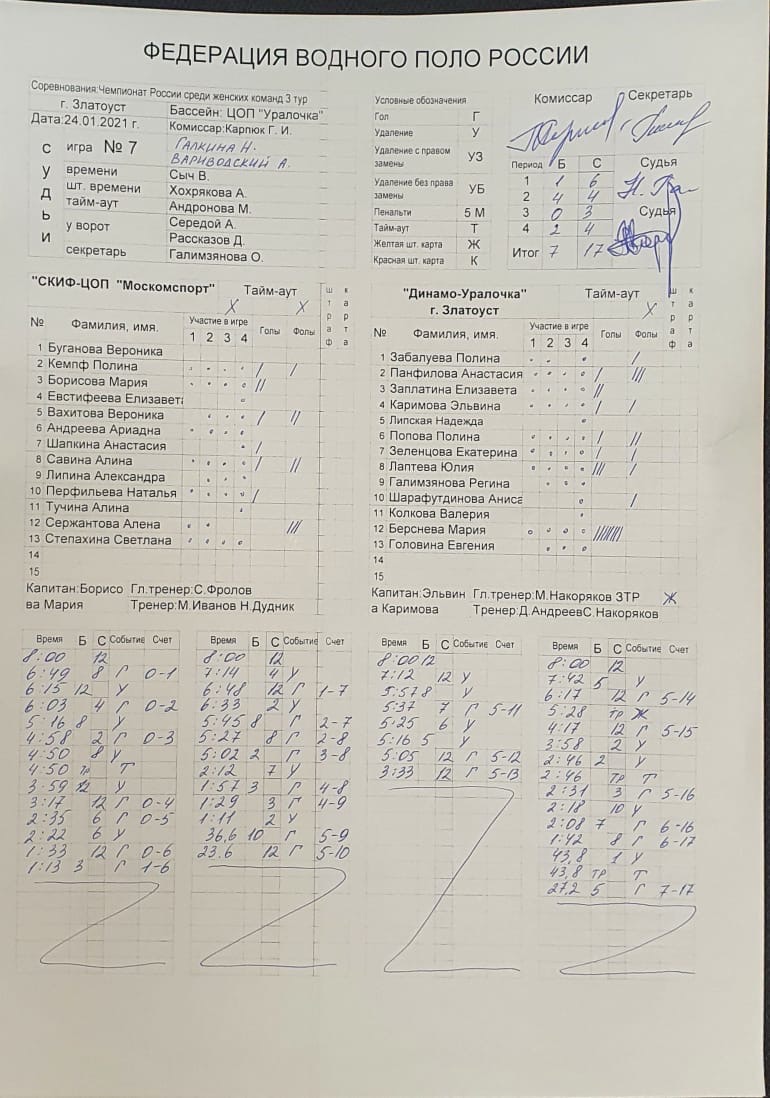 ФЕДЕРАЦИЯ ВОДНОГО ПОЛО РОССИИ
Соревнования:Чемпионат России среди женских команд 3 тур
г. Златоуст Бассейн: ЦОП "Уралочка"
Дата:24.01.2021 г. Комиссар:Карпюк Г. И.
СУДЬИ
игра № 7 Галкина Н.
Вариводский А.
времени Сыч В.
шт. времени Хохрякова А.
тайм-аут Андронова М.
у ворот Середой А.
Рассказов Д.
секретарь Галимзянова О.
Условные обозначения
Гол Г
Удаление У
Удаление с правом замены УЗ
Удаление без права замены УБ
Пенальти 5 М
Тайм-аут Т
Желтая шт. карта Ж
Красная шт. карта К
Комиссар Секретарь
Период Б С Судья
1 1 6
2 4 4
3 0 3 Судья
4 2 4
Итог 7 17
"СКИФ-ЦОП "Москомспорт" Тайм-аут штраф карта
X X
№ Фамилия, имя. Участие в игре Голы Фолы
1 2 3 4
1 Буганова Вероника
2 Кемпф Полина / /
3 Борисова Мария //
4 Евстифеева Елизавета
5 Вахитова Вероника / //
6 Андреева Ариадна
7 Шапкина Анастасия /
8 Савина Алина / //
9 Липина Александра
10 Перфильева Наталья /
11 Тучина Алина
12 Сержантова Алена ///
13 Степахина Светлана
14
15
Капитан:Борисо Гл.тренер:С.Фролов
ва Мария Тренер:М.Иванов Н.Дудник
"Динамо-Уралочка" Тайм-аут штраф карта
г. Златоуст X
№ Фамилия, имя. Участие в игре Голы Фолы
1 2 3 4
1 Забалуева Полина /
2 Панфилова Анастасия / ///
3 Заплатина Елизавета //
4 Каримова Эльвина / /
5 Липская Надежда
6 Попова Полина / //
7 Зеленцова Екатерина / /
8 Лаптева Юлия /// /
9 Галимзянова Регина
10 Шарафутдинова Аниса /
11 Колкова Валерия
12 Берснева Мария ////////
13 Головина Евгения
14
15
Капитан:Эльвин Гл.тренер:М.Накоряков ЗТР Ж
а Каримова Тренер:Д.АндреевС.Накоряков
Время Б С Событие Счет
8:00 12
6:49 8 Г 0-1
6:15 12 У
6:03 4 Г 0-2
5:16 8 У
4:58 2 Г 0-3
4:50 8 У
4:50 тр Т
3:59 12 У
3:17 12 Г 0-4
2:35 6 Г 0-5
2:22 6 У
1:33 12 Г 0-6
1:13 3 Г 1-6
Время Б С Событие Счет
8:00 12
7:14 4 У
6:48 12 Г 1-7
6:33 2 У
5:45 8 Г 2-7
5:27 8 Г 2-8
5:02 2 Г 3-8
2:12 7 У
1:57 3 Г 4-8
1:29 3 Г 4-9
1:11 2 У
36,6 10 Г 5-9
23.6 12 Г 5-10
Время Б С Событие Счет
8:00 12
7:12 12 У
5:57 8 У
5:37 7 Г 5-11
5:25 6 У
5:16 5 У
5:05 12 Г 5-12
3:33 12 Г 5-13
Время Б С Событие Счет
8:00 12
7:42 5 У
6:17 12 Г 5-14
5:28 тр Ж
4:17 12 Г 5-15
3:58 2 У
2:46 2 У
2:46 тр Т
2:31 3 Г 5-16
2:18 10 У
2:08 7 Г 6-16
1:42 8 Г 6-17
43,8 1 У
43,8 тр Т
27,2 5 Г 7-17